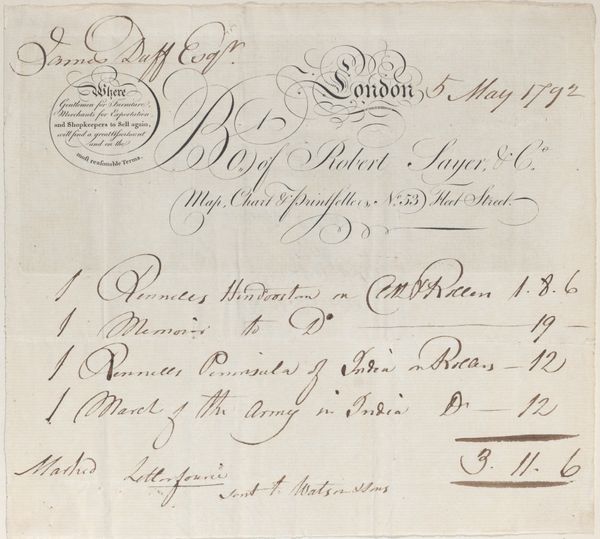 James Duff Esqr.
London 5 May 1792
Where
Gentlemen for Furniture,
Merchants for Exportation
and Shopkeepers to Sell again,
will find a great Assortment
and on the
most reasonable Terms.
Bo.t of Robert Sayer, & Co.
Map, Chart & Printsellers, No. 53 Fleet Street.
1 Rennells Hindoostan on & Rollers 1. 8. 6
1 Memoir to Do 19 -
1 Rennells Peninsula of India on Rollers - 12
1 March of the Army in India Do - 12
3. 11. 6
Marked
sent to Watson & Sons